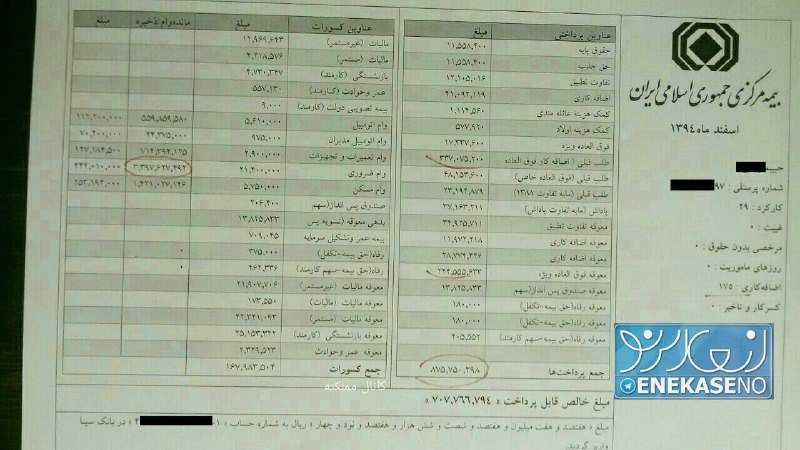 بیمه مرکزی جمهوری اسلامی ایران
اسفند ماه ۱۳۹۴
شماره پرسنلی : ۹۷
کارکرد : ۲۹
غیبت : ۰
مرخصی بدون حقوق : ۰
روزهای ماموریت : ۰
اضافه‌کاری : ۱۷۵
کسر کار و تاخیر : ۰
عناوین پرداختی مبلغ
حقوق پایه ۱۱,۵۵۸,۴۰۰
حق جذب ۱۱,۵۵۸,۴۰۰
تفاوت تطبیق ۱۲,۱۰۵,۰۱۶
اضافه کاری ۴۱,۰۹۲,۱۱۹
کمک هزینه عائله مندی ۱,۱۱۴,۵۶۰
کمک هزینه اولاد ۵۷۷,۹۲۰
فوق العاده ویژه ۱۷,۳۳۷,۶۰۰
طلب قبلی ( اضافه کار فوق العاده ۳۳۷,۰۷۵,۲۰۰
طلب قبلی (فوق العاده خاص) ۴۸,۱۵۳,۶۰۰
طلب قبلی (مابه تفاوت ۱۳۸۸) ۲۳,۱۹۴,۸۷۹
پاداش (مابه تفاوت پاداش) ۳۷,۱۶۳,۲۱۱
معوقه تفاوت تطبیق ۳۴,۹۲۵,۷۱۱
معوقه اضافه کاری ۱۱,۹۷۲,۴۱۸
معوقه اضافه کاری ۲۸,۷۷۴,۴۴۶
معوقه فوق العاده ویژه ۲۴۴,۵۵۵,۶۳۳
معوقه صندوق پس انداز(سهم ۱۳,۸۲۵,۸۳۳
معوقه رفاه(حق بیمه-تکفل) ۱۸۰,۰۰۰
معوقه رفاه(حق بیمه-تکفل) ۱۸۰,۰۰۰
معوقه رفاه(حق بیمه-سهم کارمند) ۴۰۵,۵۵۲
جمع پرداخت‌ها ۸۷۵,۷۵۰,۲۹۸
عناوین کسورات مبلغ مانده‌وام ذخیره مبلغ
مالیات (غیرمستمر) ۱۲,۹۶۹,۶۴۳
مالیات (مستمر) ۴,۲۱۸,۵۷۶
بازنشستگی (کارمند) ۴,۷۳۰,۳۶۷
عمر وحوادث (کارمند) ۵۵۷,۱۳۰
بیمه تصویبی دولت (کارمند) ۹,۰۰۰
وام اتومبیل ۵,۶۱۰,۰۰۰ ۵۵۹,۸۵۹,۵۸۰ ۱۱۲,۲۰۰,۰۰۰
وام اتومبیل مدیران ۹۷۵,۰۰۰ ۲۴,۳۷۵,۰۰۰ ۷۰,۴۰۰,۰۰۰
وام تعمیرات و تجهیزات ۲,۹۰۰,۰۰۰ ۷۱۴,۳۹۴,۱۲۵ ۱۲۷,۱۸۴,۵۰۰
وام ضروری ۲۱,۴۰۰,۰۰۰ ۳,۳۹۷,۶۴۷,۴۹۲ ۴۴۲,۰۱۰,۰۰۰
وام مسکن ۵,۷۵۰,۰۰۰ ۱,۴۲۱,۰۲۷,۱۴۶ ۲۵۳,۱۹۲,۰۰۰
صندوق پس انداز(سهم ۲۰۶,۴۰۰
بدهی معوقه (تسویه پس ۱۳,۸۲۵,۸۳۳
بیمه عمر وتشکیل سرمایه ۷۰۹,۰۴۵
رفاه(حق بیمه-تکفل) ۳۷۵,۰۰۰ ۰
رفاه(حق بیمه-سهم کارمند) ۴۶۲,۳۳۶ ۰
معوقه مالیات (غیرمستمر) ۲۱,۹۰۷,۷۰۶
معوقه مالیات (مالیات) ۱۷۳,۵۵۰
معوقه مالیات (مستمر) ۴۲,۲۴۱,۰۹۳
معوقه بازنشستگی (کارمند) ۲۵,۱۵۳,۳۲۲
معوقه عمر وحوادث ۲,۳۲۹,۵۲۳
جمع کسورات ۱۶۷,۹۸۳,۵۰۴
کانال مملکته
مبلغ خالص قابل پرداخت « ۷۰۷,۷۶۶,۷۹۴ »
مبلغ « هفتصد و هفت میلیون و هفتصد و شصت و شش هزار و هفتصد و نود و چهار » ریال به شماره حساب « در بانک سینا
واریز گردید.
انعکاس نو
ENEKASENO